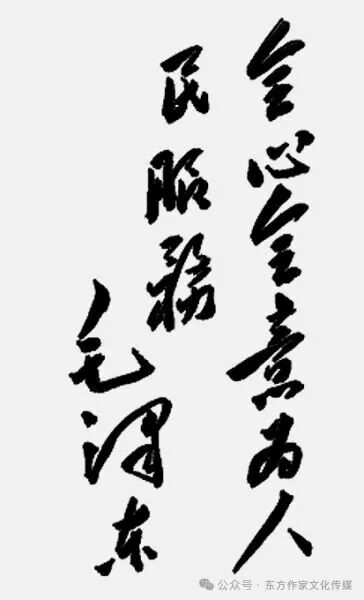 全心全意为人
民服務
毛泽东
公众号·东方作家文化传媒